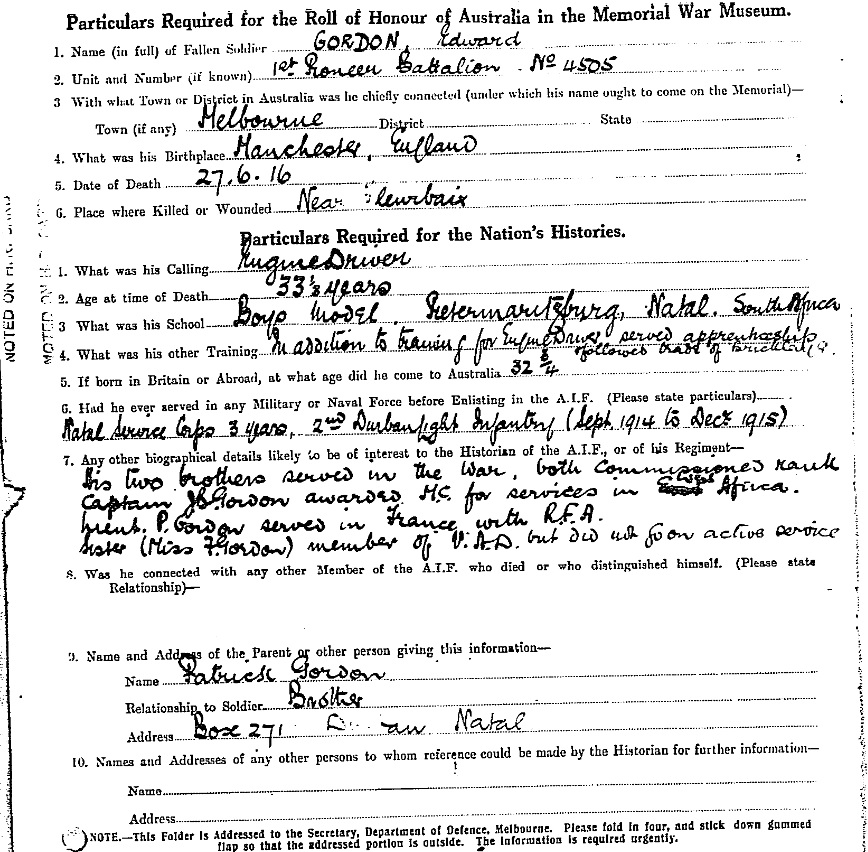 Particulars Required for the Roll of Honour of Australia in the Memorial War Museum.
1. Name (in full) of Fallen Soldier GORDON, Edward
2. Unit and Number (if known) 1st Pioneer Battalion No 4505
3 With what Town or District in Australia was he chiefly connected (under which his name ought to come on the Memorial)—
Town (if any) Melbourne District State
4. What was his Birthplace Manchester, England
5. Date of Death 27.6.16
6. Place where Killed or Wounded Near Fleurbaix
Particulars Required for the Nation's Histories.
1. What was his Calling Engine Driver
2. Age at time of Death 33 years
3 What was his School Boys Model Pietermaritzburg, Natal. South Africa
4. What was his other Training In addition to training for Engine Driver served apprenticeship
followed trade of
5. If born in Britain or Abroad, at what age did he come to Australia 32
6. Had he ever served in any Military or Naval Force before Enlisting in the A.I.F. (Please state particulars)
Natal Service Corps 3 years, 2nd Durban Light Infantry (Sept. 1914 to Decr 1915)
7. Any other biographical details likely to be of interest to the Historian of the A.I.F., or of his Regiment—
His two brothers served in the War, both Commissioned rank
Captain J Gordon awarded M.C. for services in Africa.
Lieut. P. Gordon served in France with R.F.A.
Sister (Miss F. Gordon) member of V.A.D. but did not go on active service
8. Was he connected with any other Member of the A.I.F. who died or who distinguished himself. (Please state
Relationship)—
9. Name and Address of the Parent or other person giving this information—
Name Patrick Gordon
Relationship to Soldier Brother
Address Box 271 Natal
10. Names and Addresses of any other persons to whom reference could be made by the Historian for further information—
Name
Address
NOTE.—This Folder is Addressed to the Secretary, Department of Defence, Melbourne. Please fold in four, and stick down gummed
flap so that the addressed portion is outside. The information is required urgently.
NOTED ON
NOTED ON